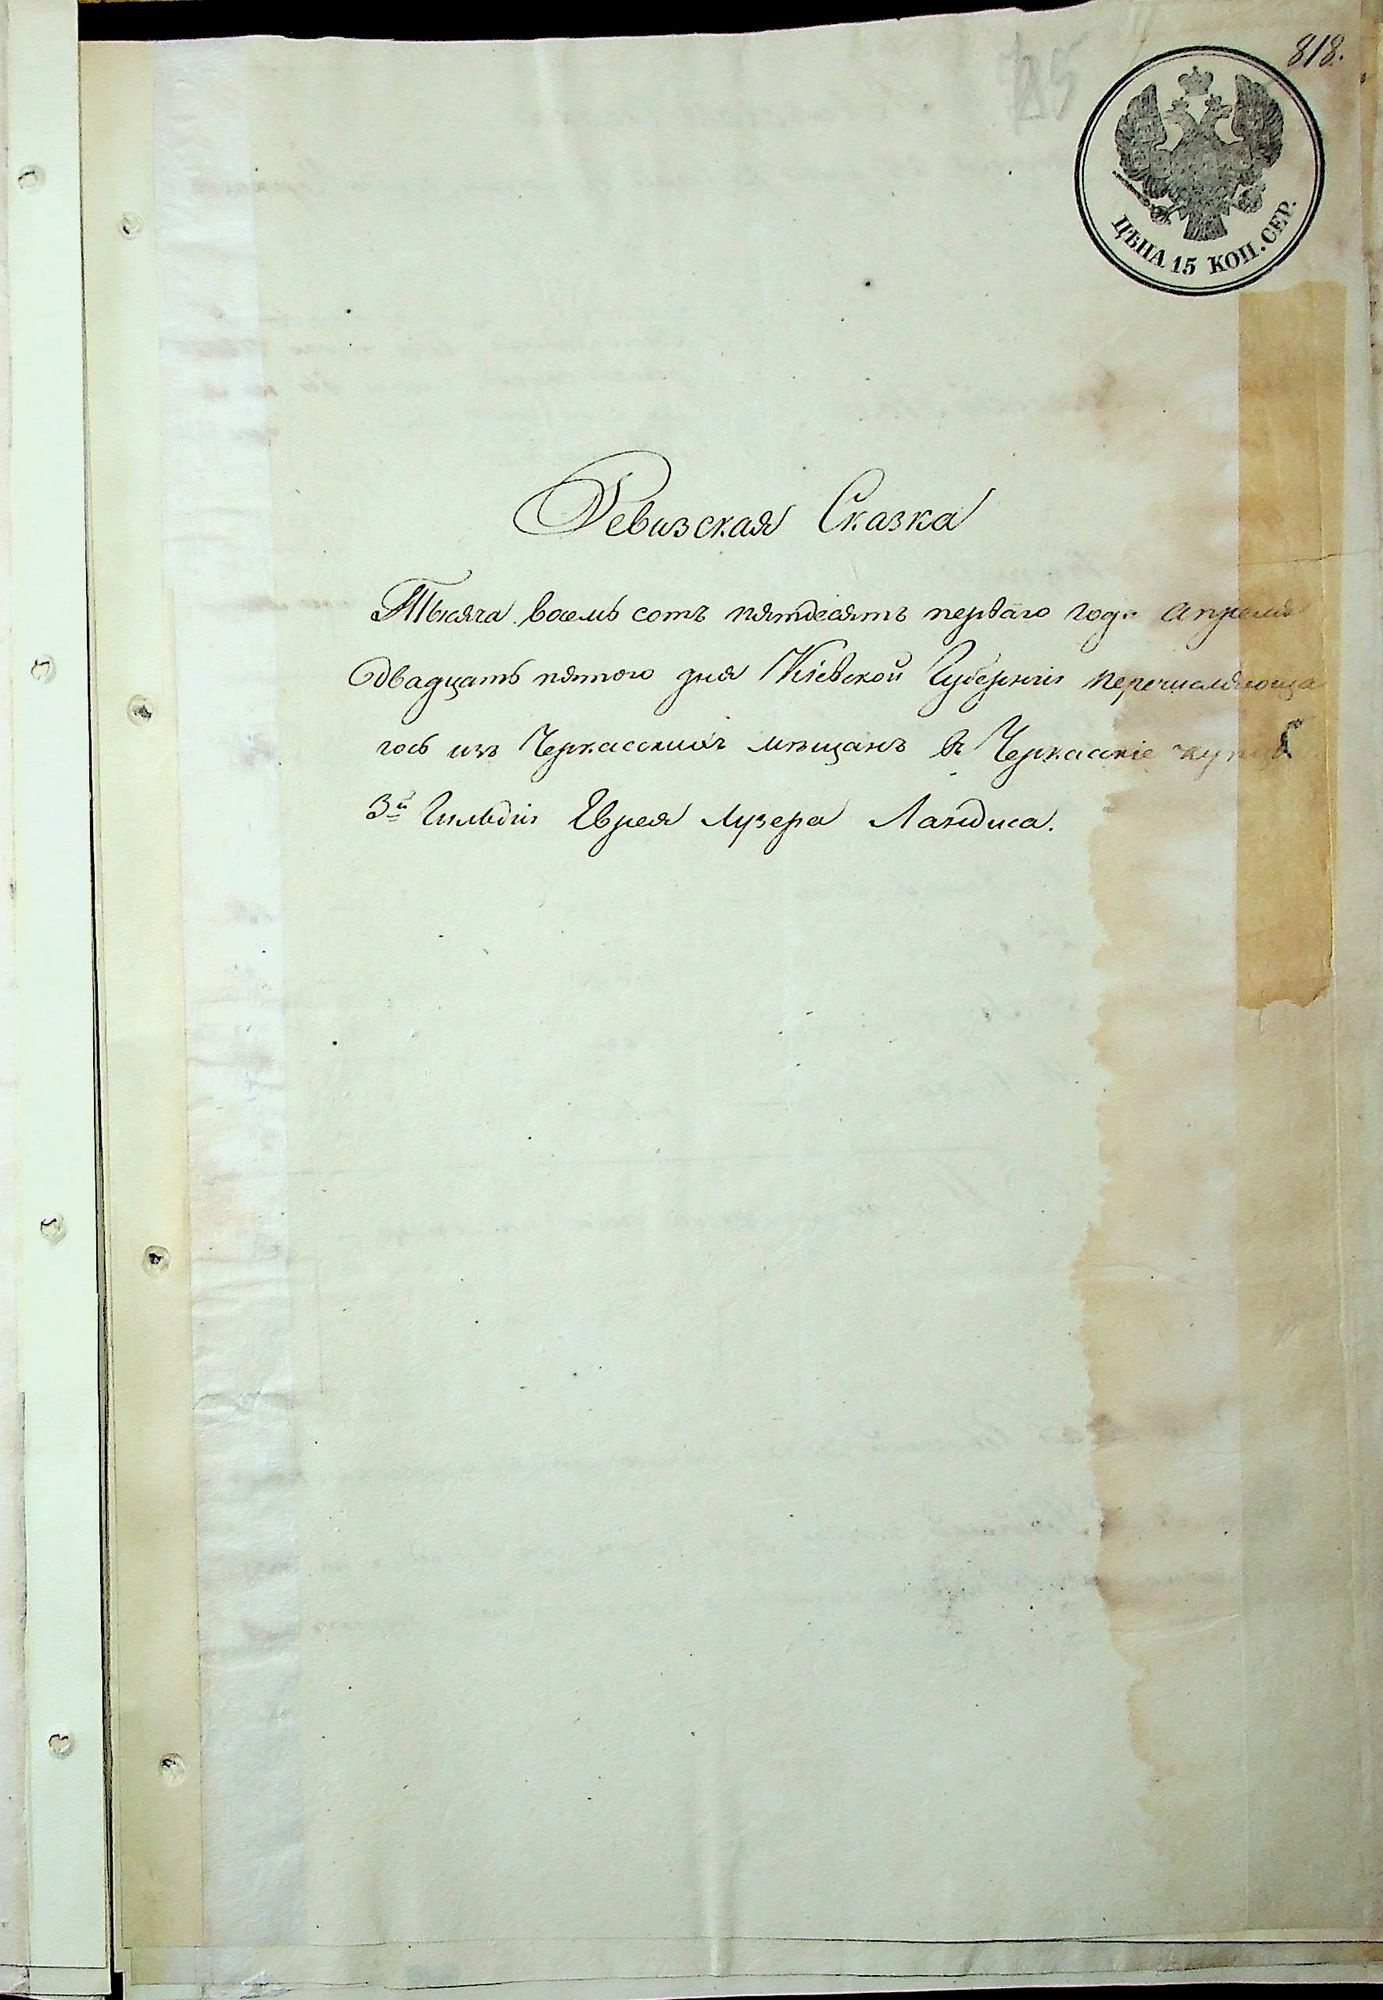 818.
ЦѢНА 15 КОП. СЕР.
Ревизская Сказка
Тысяча восемь сотъ пятдесятъ перваго года Апреля
двадцать пятого дня Кіевской Губерніи перечисляюща
гось изъ Черкасскихъ мещанъ въ Черкаскіе купцы
3й Гильдіи Еврея Лузера Ландиса.